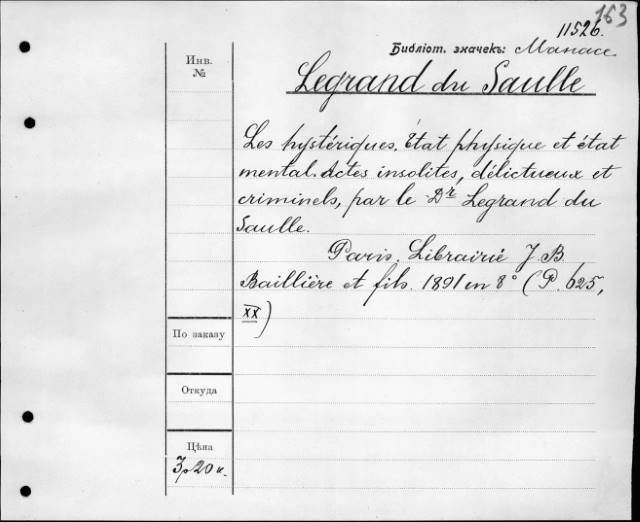 163
11526.
Библіот. значекъ: Манасе
Инв.
№
Legrand du Saulle
Les hystériques. État physique et état
mental. Actes insolites, délictueux et
criminels, par le Dr Legrand du
Saulle.
Paris. Librairie J. B.
Baillière et fils. 1891 en 8° (P. 625,
XX)
По заказу
Откуда
Цѣна
3 р 20 к.